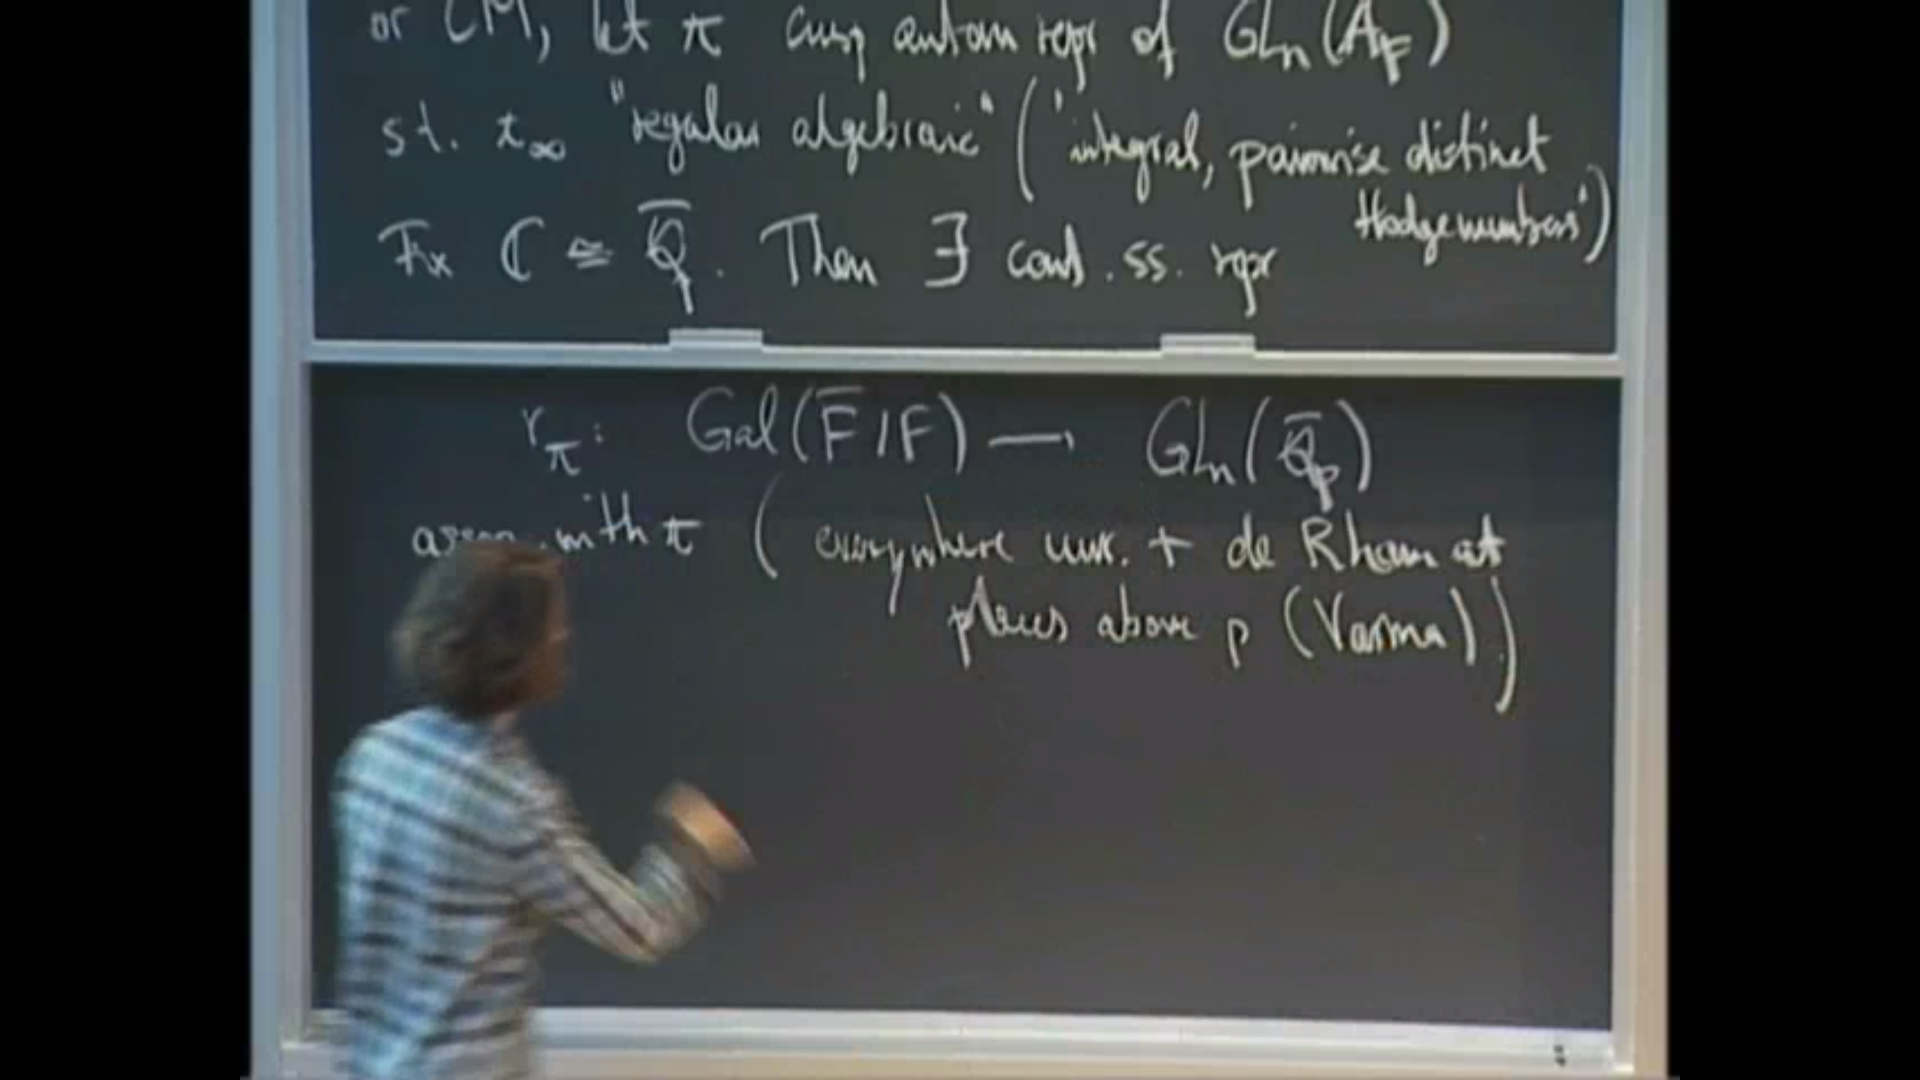 or CM, let π cusp autom repr of GLn(A_F)
s.t. π_∞ "regular algebraic" ('integral, pairwise distinct
Hodge numbers')
Fix ℂ ≅ Q̄_p. Then ∃ cont. ss. repr
r_π: Gal(F̄/F) → GLn(Q̄_p)
assoc. with π (everywhere unr. + de Rham at
places above p (Varma))